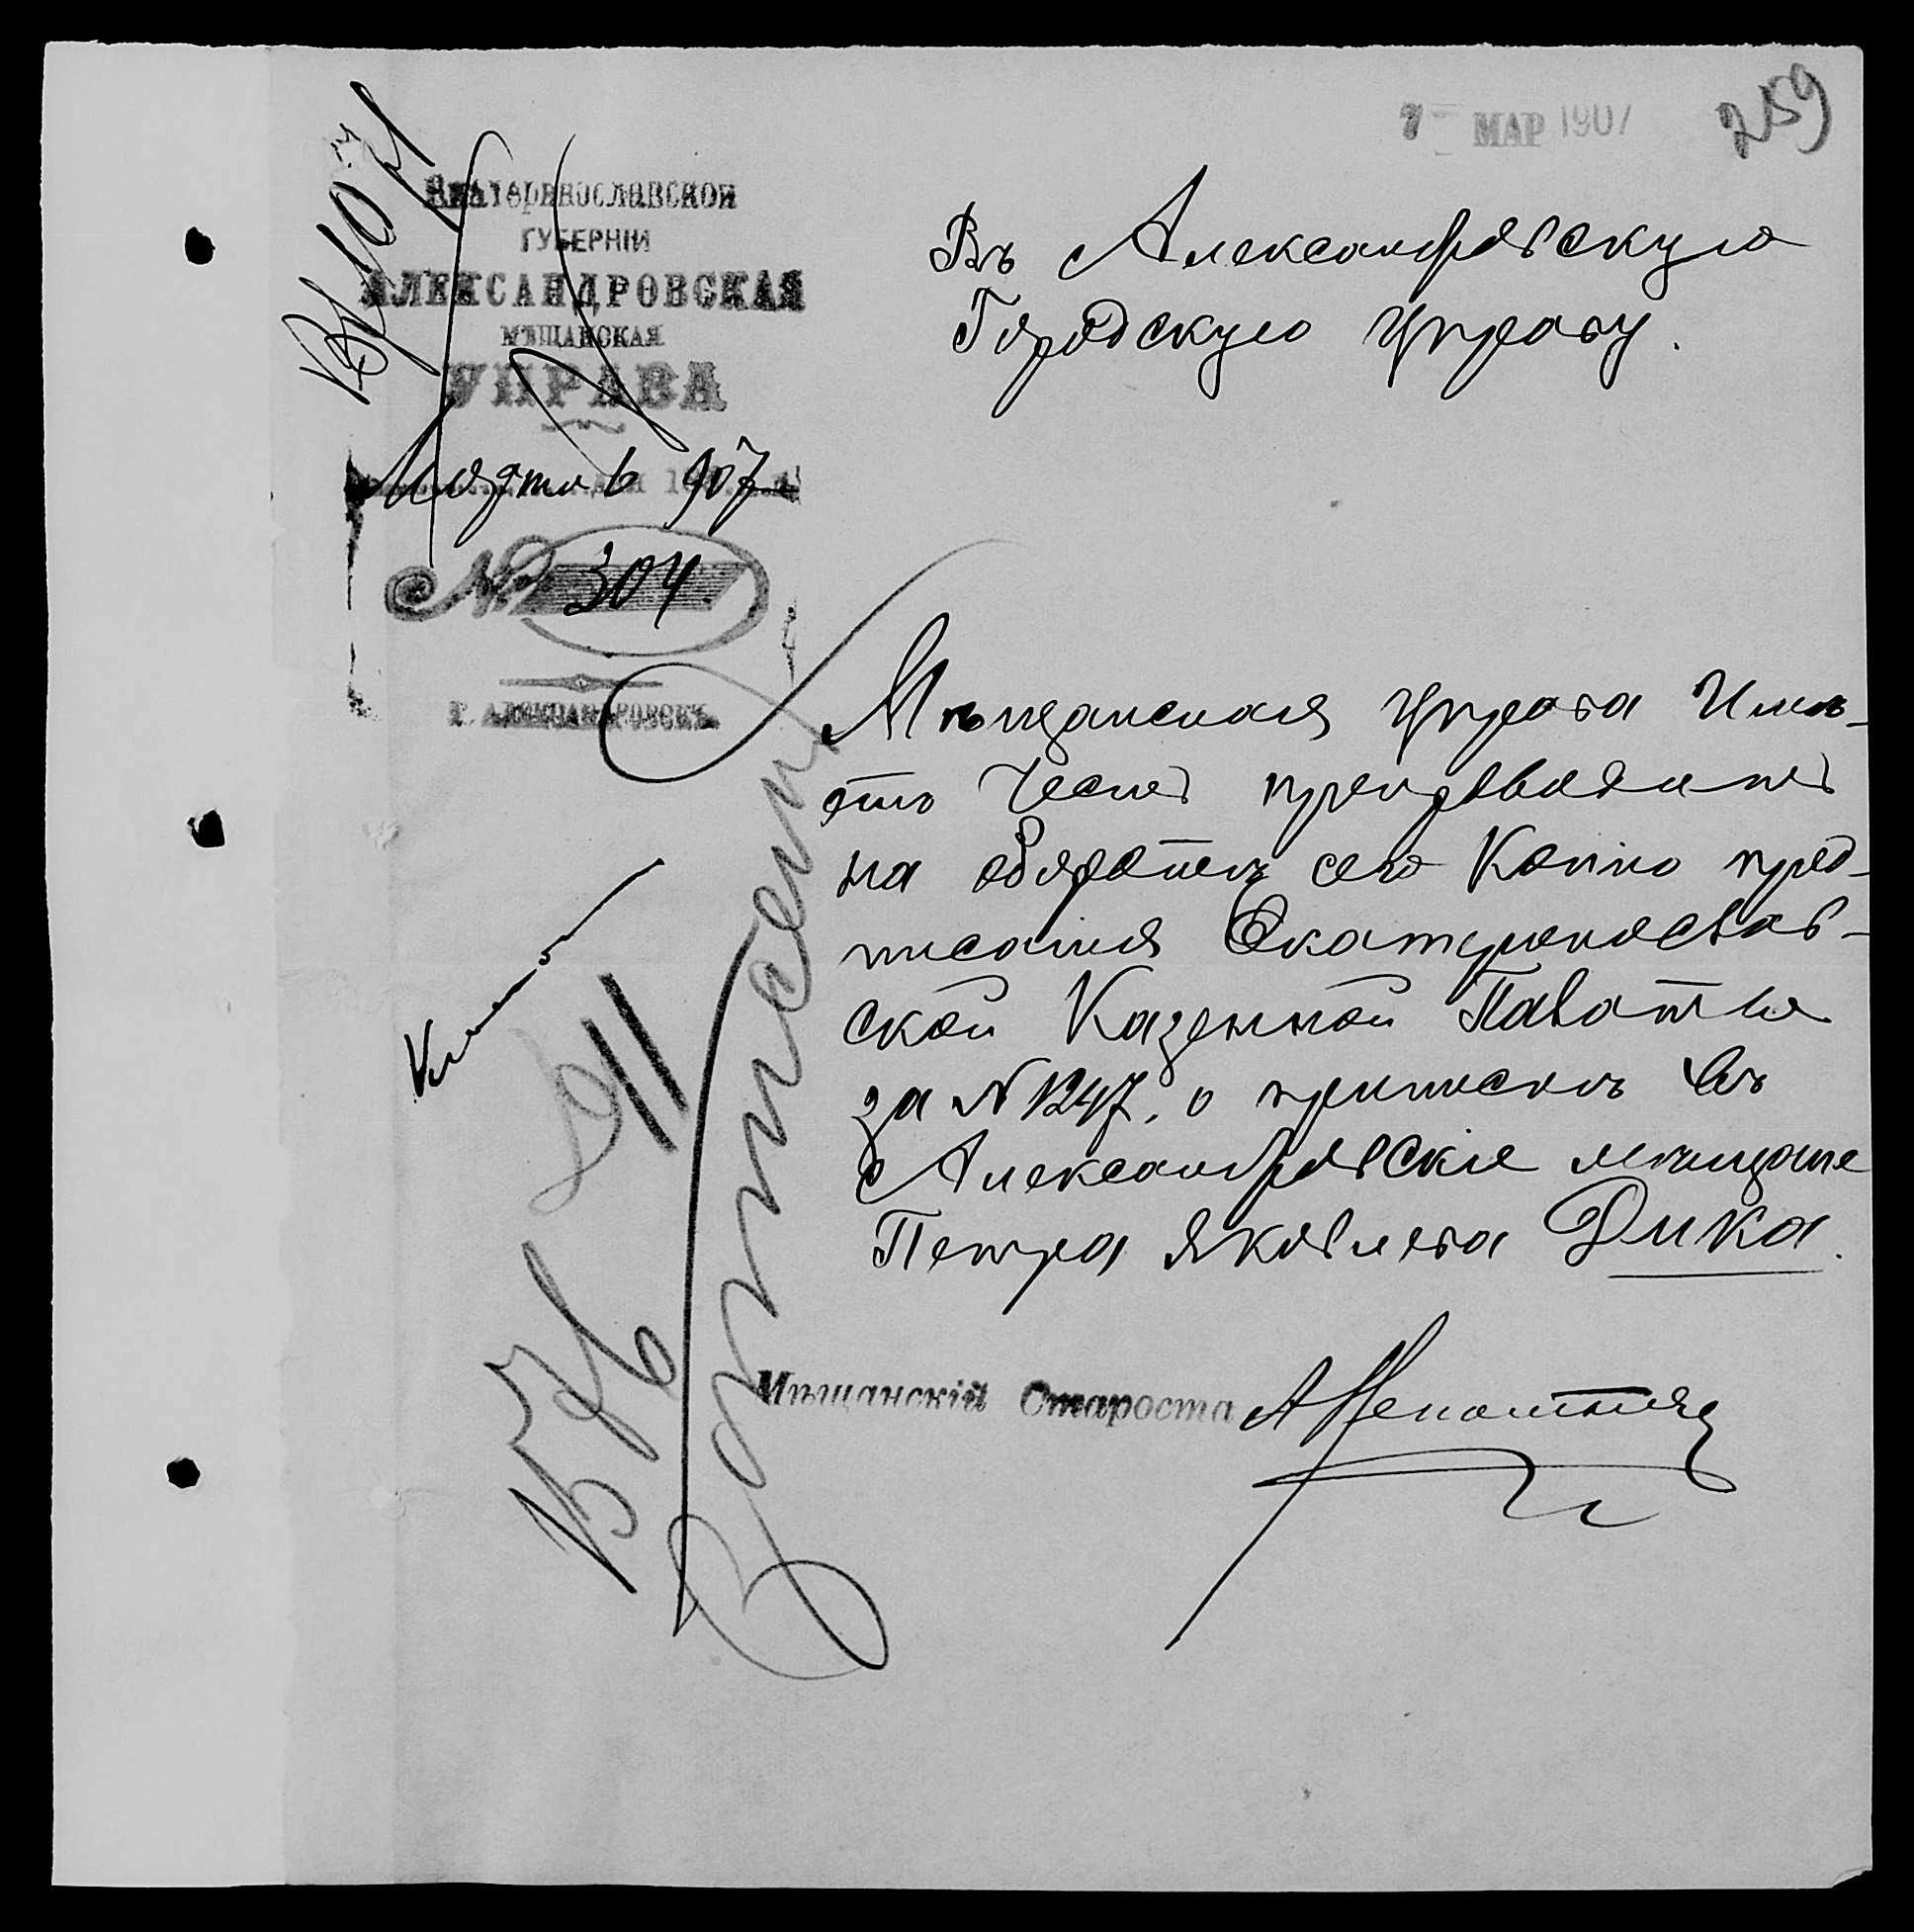 7 МАР 1907
259
Екатеринославской
ГУБЕРНІИ
АЛЕКСАНДРОВСКАЯ
МѢЩАНСКАЯ
УПРАВА
Марта 6 1907
№ 304.
Г. АЛЕКСАНДРОВСКЪ
Въ Александровскую
Городскую Управу.
Мѣщанская Управа Имѣ-
етъ Честь препроводить
на оборотѣ сего Копію пред-
писанія Екатеринослав-
ской Казенной Палаты
за № 1247, о припискѣ въ
Александровскіе мѣщане
Петра Яковлева Дика.
Мѣщанскій Староста